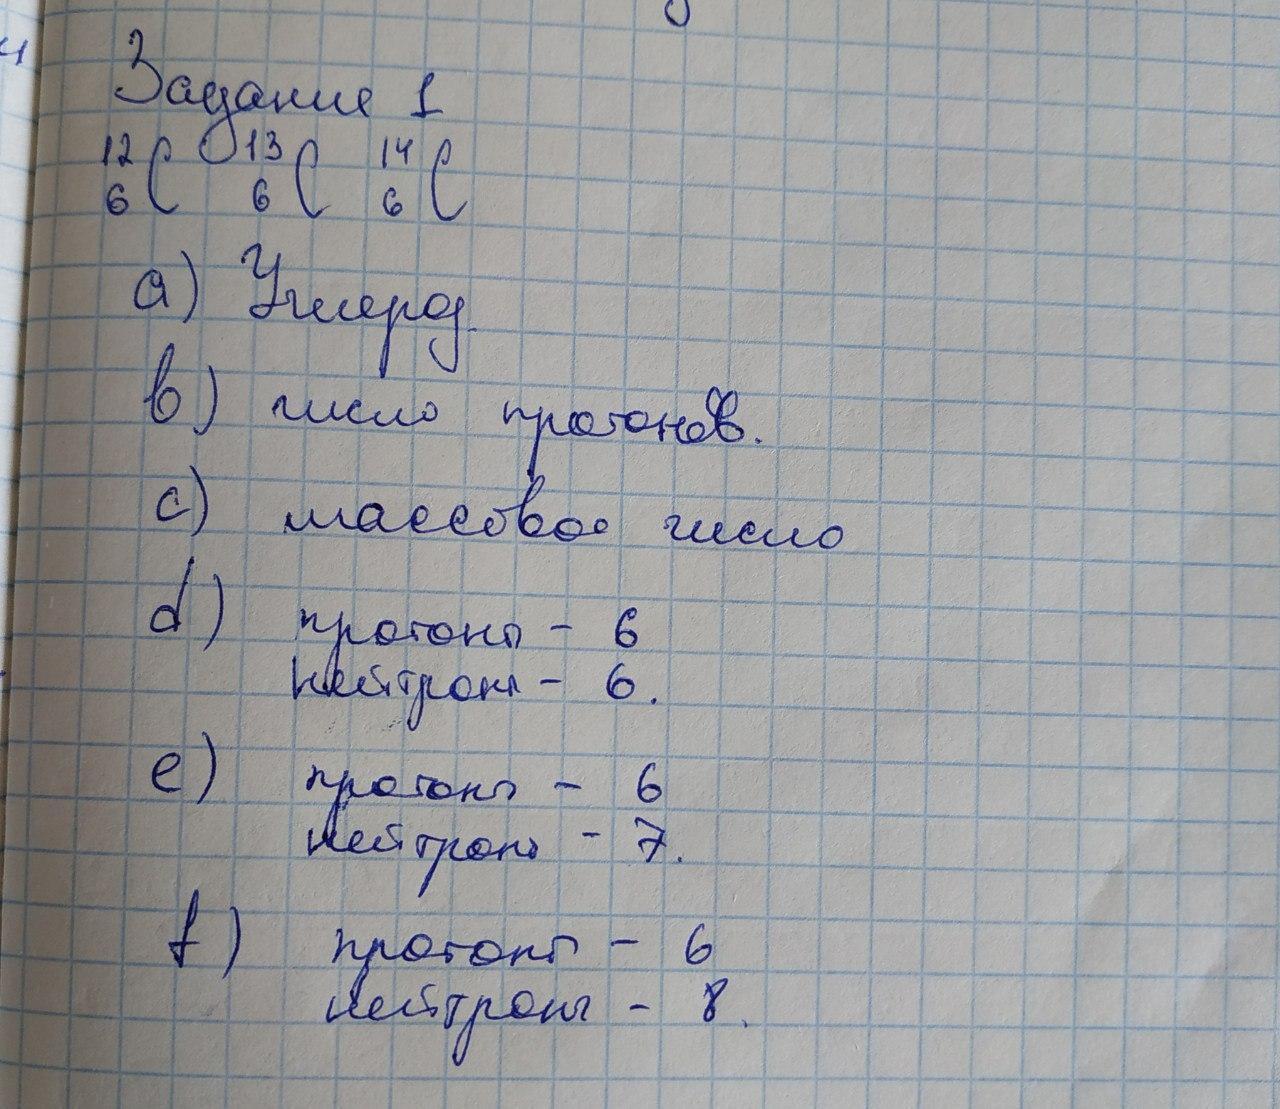 Задание 1
12 6 C 13 6 C 14 6 C
a) Углерод.
b) число протонов.
c) массовое число
d) протоны - 6
нейтроны - 6.
e) протоны - 6
нейтроны - 7.
f) протоны - 6
нейтроны - 8.